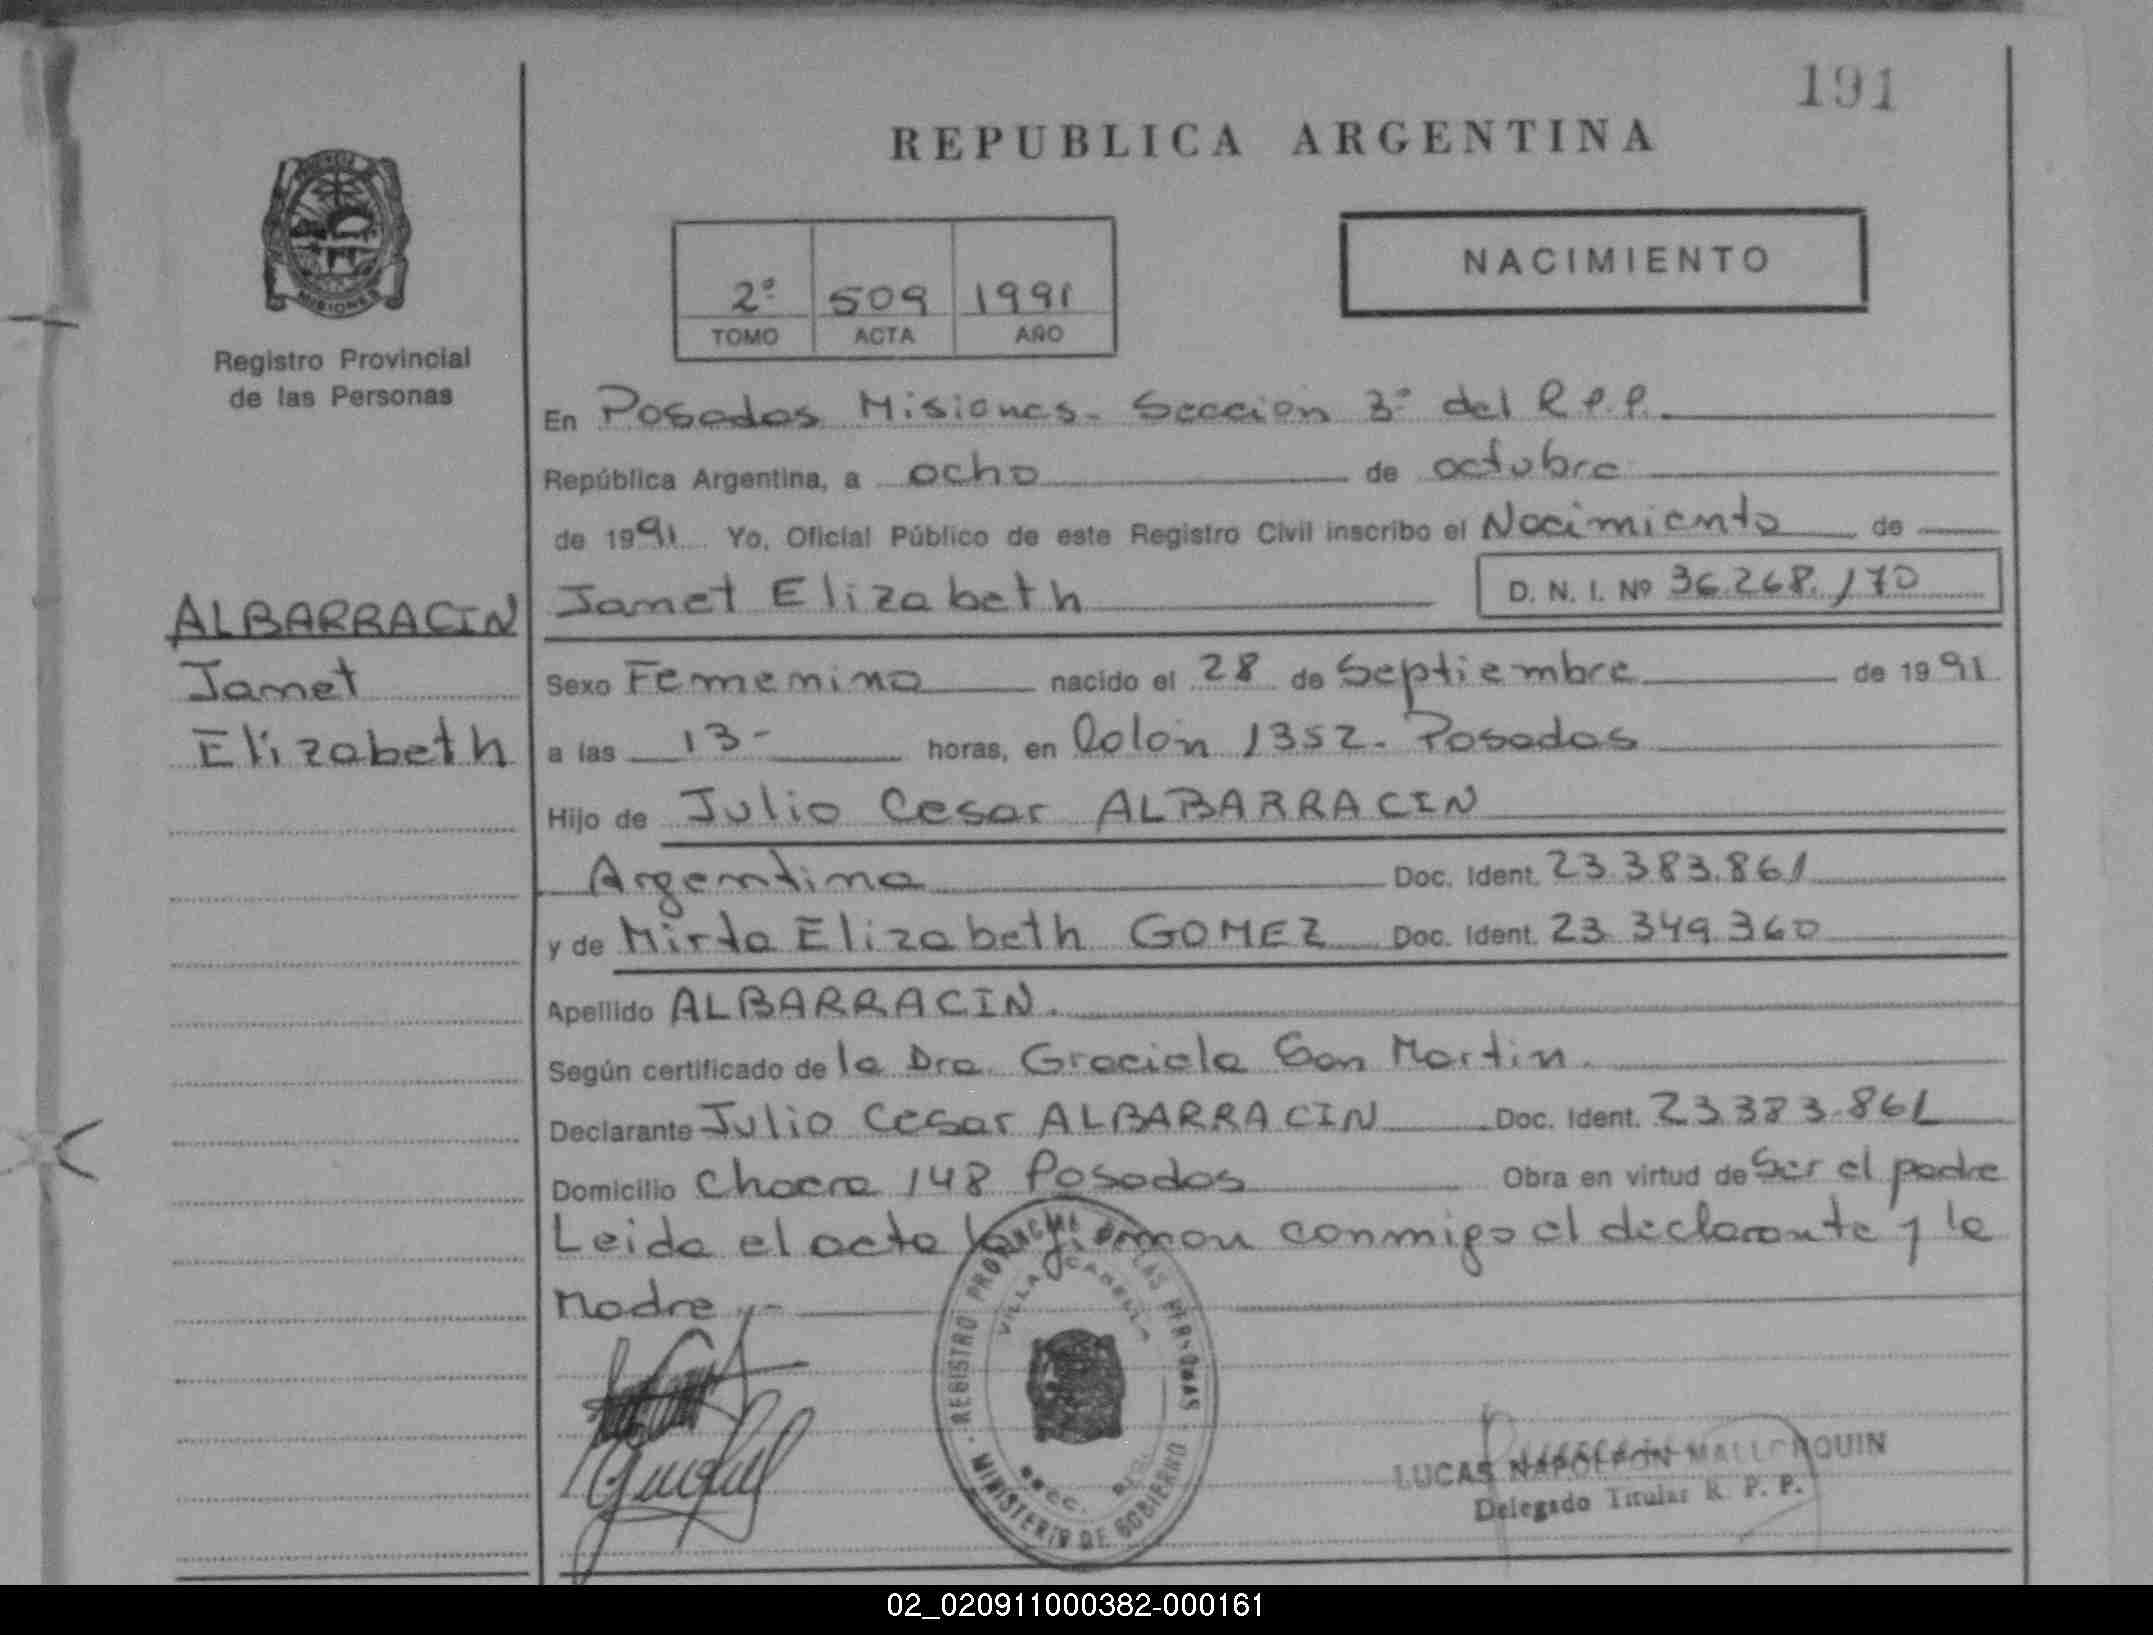 191
REPUBLICA ARGENTINA
MISIONES
Registro Provincial
de las Personas
2º 509 1991
TOMO ACTA AÑO
NACIMIENTO
En Posadas Misiones- Seccion 3º del R.P.P.
República Argentina, a ocho de octubre
de 1991 Yo, Oficial Público de este Registro Civil inscribo el Nacimiento de
Janet Elizabeth D. N. I. Nº 36.268.170
ALBARRACIN
Janet
Elizabeth
Sexo Femenino nacido el 28 de Septiembre de 1991
a las 13- horas, en Colón 1352- Posadas
Hijo de Julio Cesar ALBARRACIN
Argentina Doc. Ident. 23.383.861
y de Mirta Elizabeth GOMEZ Doc. Ident. 23 349.360
Apellido ALBARRACIN.
Según certificado de la Dra. Graciela San Martin.
Declarante Julio Cesar ALBARRACIN Doc. Ident. 23383.861
Domicilio Chacra 148 Posadas Obra en virtud de ser el padre
Leida el acta la firman conmigo el declarante y la
Madre.-
REGISTRO PROVINCIAL DE LAS PERSONAS
VILLA CABELLO
SECC.
MINISTERIO DE GOBIERNO
LUCAS NAPOLEON MALLORQUIN
Delegado Titular R. P. P.
02_020911000382-000161